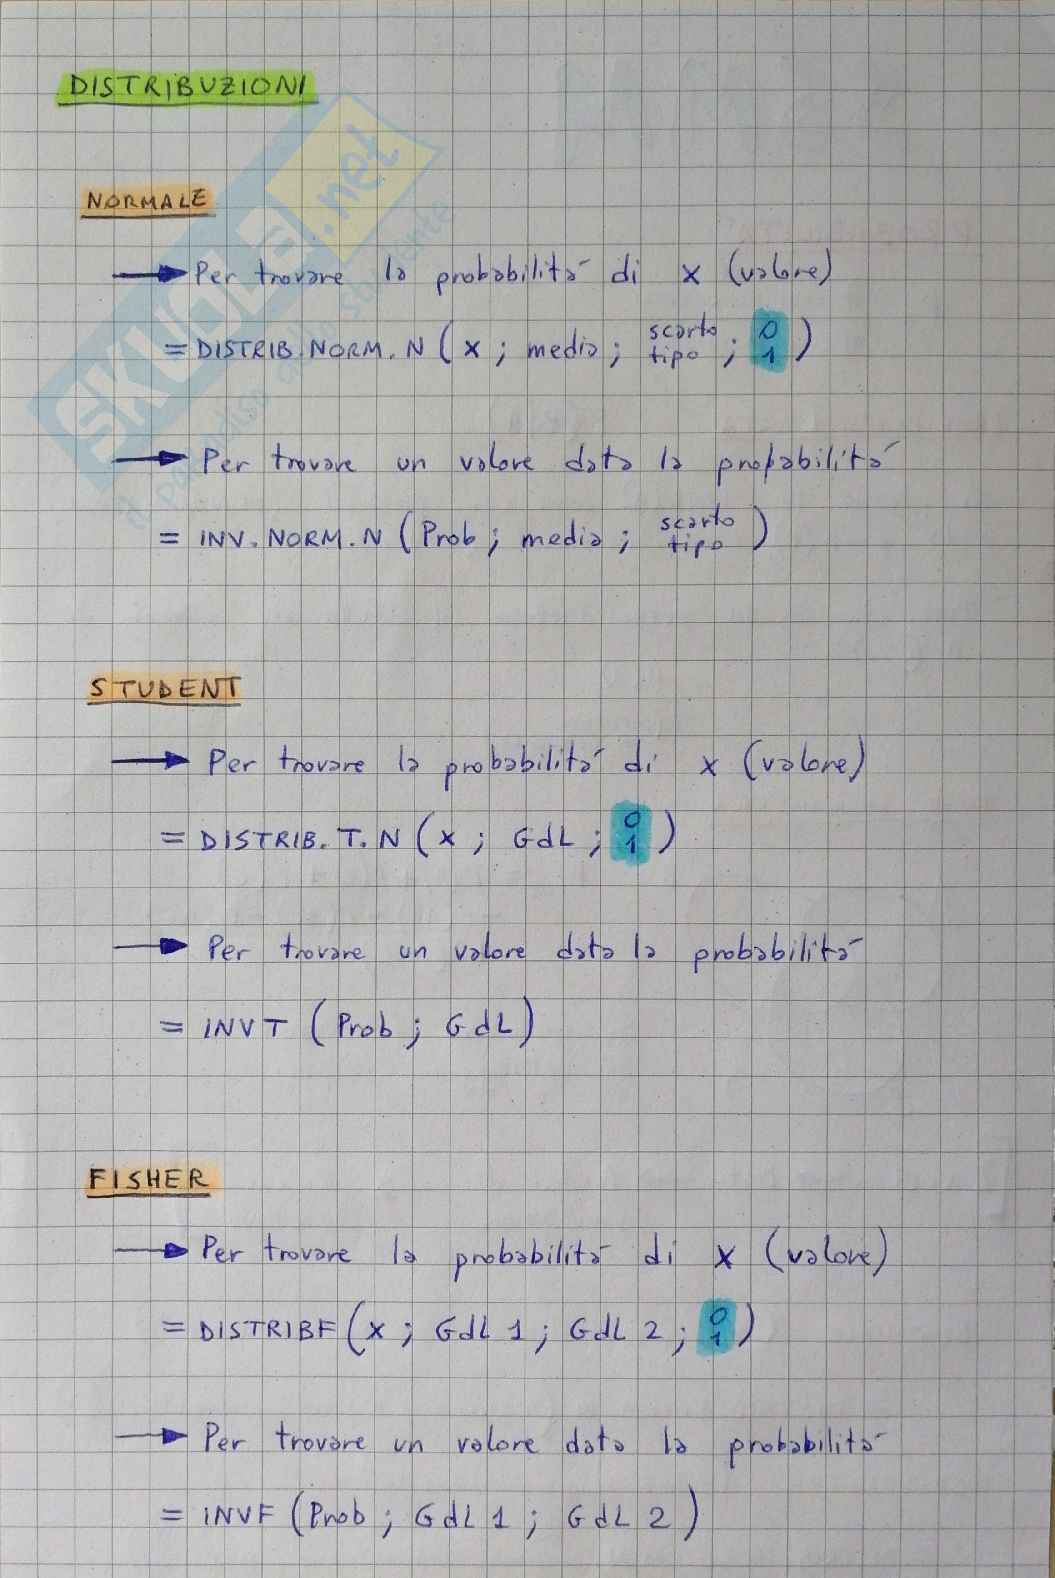 DISTRIBUZIONI
NORMALE
Per trovare la probabilità di x (valore)
= DISTRIB.NORM.N (x ; media ; scarto tipo ; 0 1)
Per trovare un valore data la probabilità
= INV.NORM.N (Prob ; media ; scarto tipo)
STUDENT
Per trovare la probabilità di x (valore)
= DISTRIB.T.N (x ; GdL ; 0 1)
Per trovare un valore data la probabilità
= INVT (Prob ; GdL)
FISHER
Per trovare la probabilità di x (valore)
= DISTRIBF (x ; GdL 1 ; GdL 2 ; 0 1)
Per trovare un valore data la probabilità
= INVF (Prob ; GdL 1 ; GdL 2)
SKUOLA.net
il paradiso dello studente